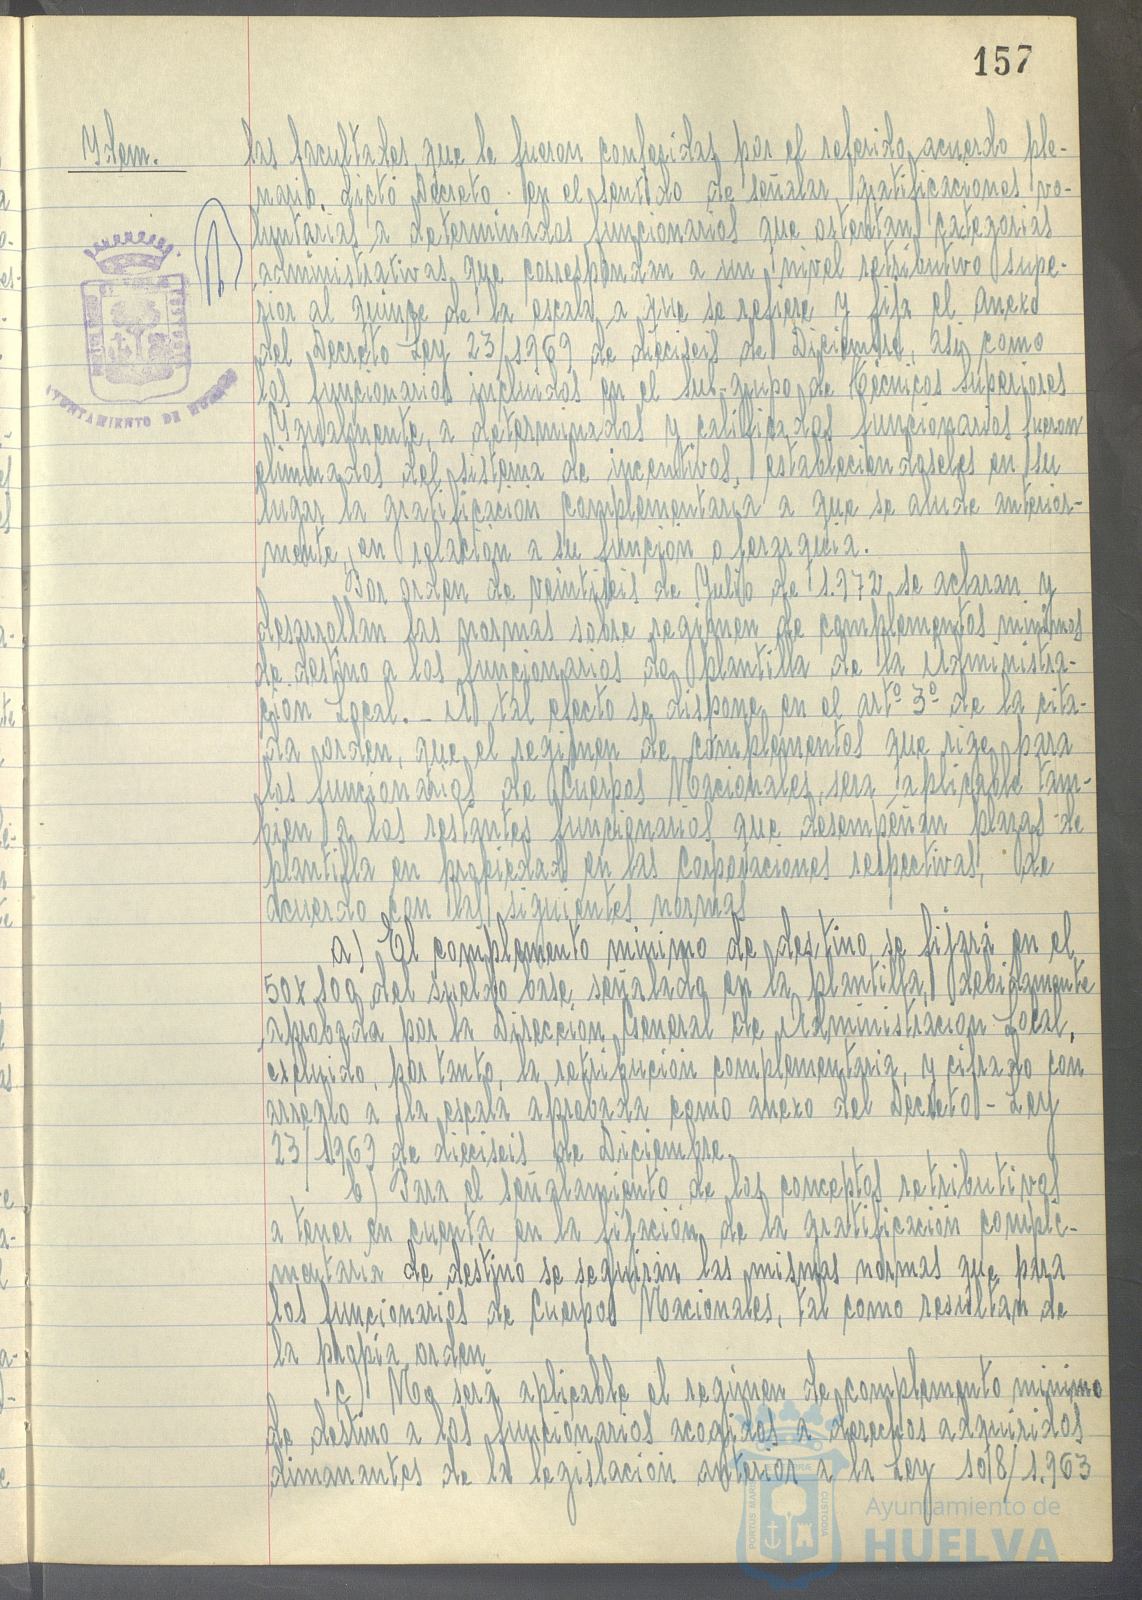 157
Ydem.
las facultades que le fueron conferidas por el referido acuerdo ple-
nario, dictó Decreto en el sentido de señalar gratificaciones vo-
luntarias a determinados funcionarios que ostentan categorias
administrativas que correspondan a un nivel retributivo supe-
rior al quince de la escala a que se refiere y fija el anexo
del Decreto Ley 23/1969 de dieciseis de Diciembre, asi como
los funcionarios incluidos en el sub-grupo de Técnicos Superiores
Ygualmente, a determinados y calificados funcionarios fueron
eliminados del sistema de incentivos, estableciendoseles en su
lugar la gratificación complementaria a que se alude anterior-
mente, en relación a su función o jerarquia.
Por orden de veintiseis de Julio de 1.972 se aclaran y
desarrollan las normas sobre regimen de complementos minimos
de destino a los funcionarios de plantilla de la Administra-
ción Local.- Al tal efecto se dispone en el artº 3º de la cita-
da orden, que el regimen de complementos que rige para
los funcionarios de Cuerpos Nacionales, será aplicable tam-
bien a los restantes funcionarios que desempeñan plazas de
plantilla en propiedad en las Corporaciones respectivas, de
acuerdo con las siguientes normas
a) El complemento minimo de destino se fijará en el
50% del sueldo base señalado en la plantilla, debidamente
aprobada por la Dirección General de Administración Local,
excluido, por tanto, la retribución complementaria, y cifrado con
arreglo a la escala aprobada como anexo del Decreto-Ley
23/1969 de dieciseis de Diciembre.
b) Para el señalamiento de los conceptos retributivos
a tener en cuenta en la fijación de la gratificación comple-
mentaria de destino se seguirán las mismas normas que para
los funcionarios de Cuerpos Nacionales, tal como resultan de
la propia orden
c) No será aplicable el regimen de complemento minimo
de destino a los funcionarios acogidos a derechos adquiridos
dimanantes de la legislación anterior a la Ley 108/1.963
AYUNTAMIENTO DE HUELVA
PORTUS MARIS
CUSTODIA
Ayuntamiento de
HUELVA